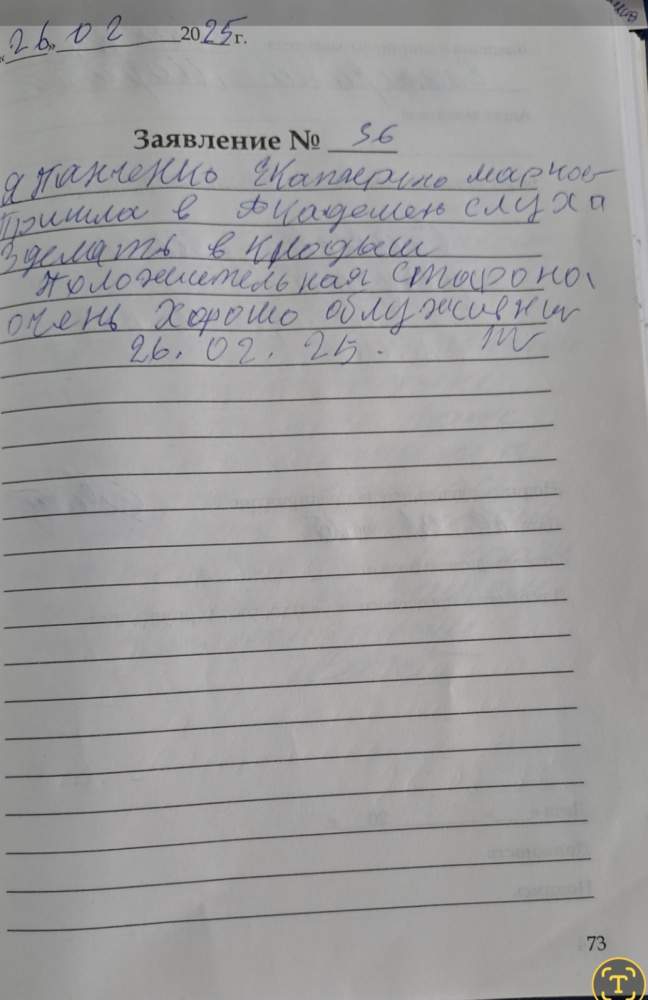 «26» 02 2025 г.
Заявление № 36
Я Панченко Екатерино марков
Пришла в Академеь слуха
Зделать вкладыш
Положительная старона
очень хорошо облуживни
26. 02. 25.
73